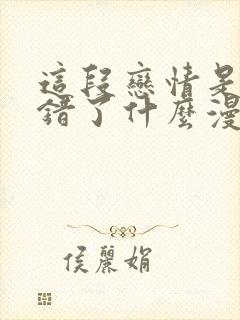 這段戀情是
錯了什麼漫
侯麗娟